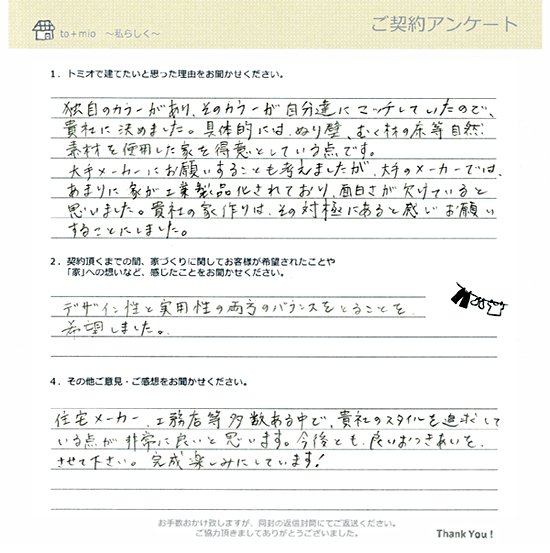 to+mio ～私らしく～
ご契約アンケート
1．トミオで建てたいと思った理由をお聞かせください。
独自のカラーがあり、そのカラーが自分達にマッチしていたので、
貴社に決めました。具体的には、ぬり壁、むく材の床等自然
素材を使用した家を得意としている点です。
大手メーカーにお願いすることも考えましたが、大手のメーカーでは、
あまりに家が工業製品化されており、面白さが欠けていると
思いました。貴社の家作りは、その対極にあると感じお願い
することにしました。
2．契約頂くまでの間、家づくりに関してお客様が希望されたことや
「家」への想いなど、感じたことをお聞かせください。
デザイン性と実用性の両方のバランスをとることを
希望しました。
4．その他ご意見・ご感想をお聞かせください。
住宅メーカー、工務店等多数ある中で、貴社のスタイルを追求して
いる点が非常に良いと思います。今後とも、良いおつきあいを
させて下さい。完成楽しみにしています！
お手数おかけ致しますが、同封の返信封筒にてご返送ください。
ご協力頂きましてありがとうございました。
Thank You !